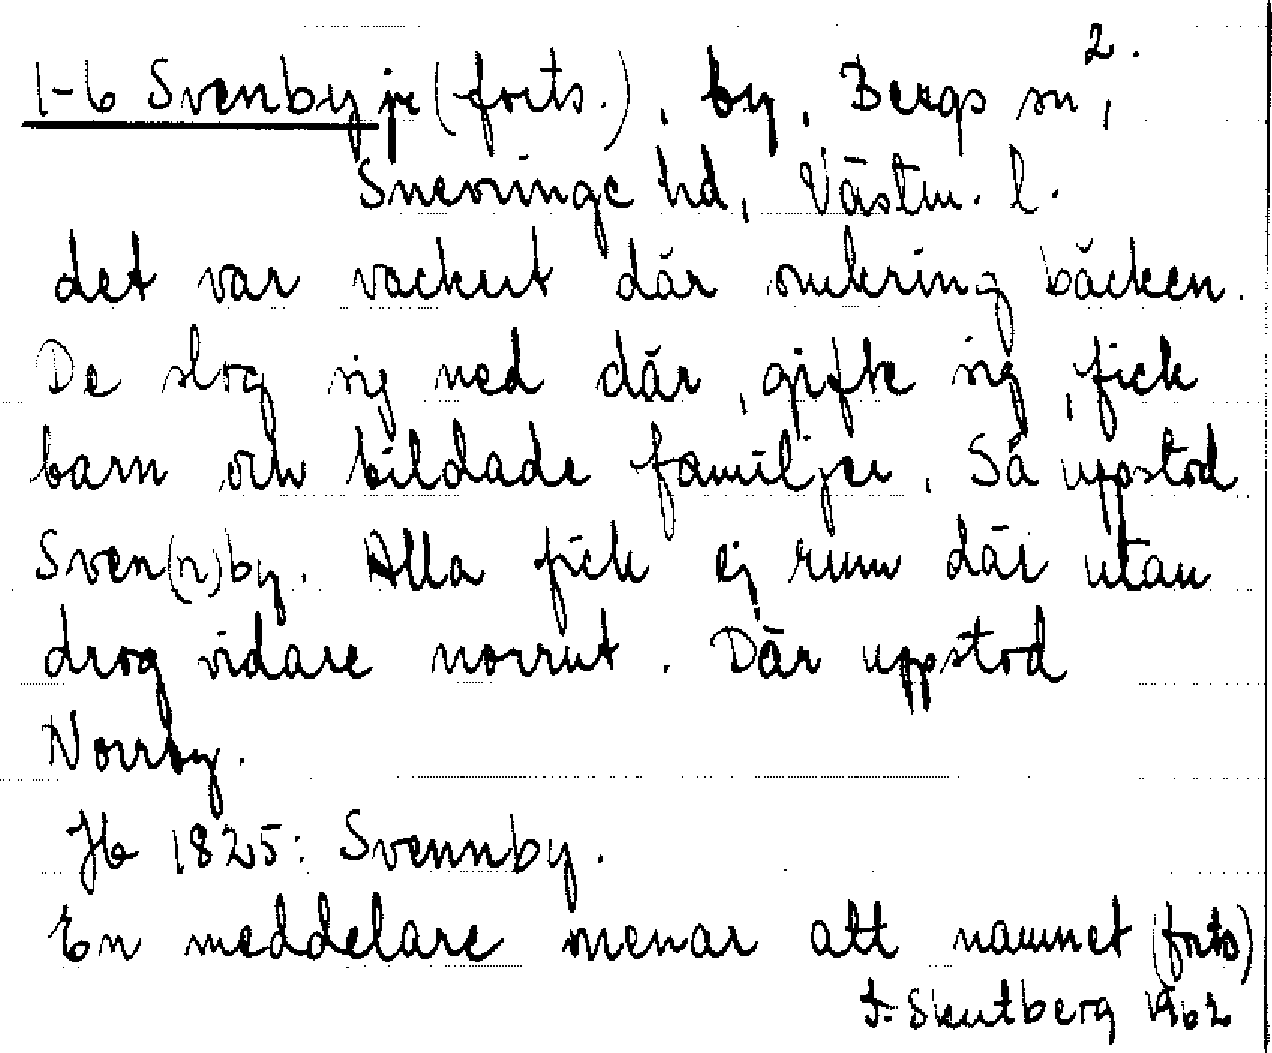 2.
1-6 Svenby ɲe (forts.), by, Bergs sn,
Snevringe hd, Västm. l.
det var vackert där omkring bäcken.
De slog sig ned där, gifte sig, fick
barn och bildade familjer. Så uppstod
Sven(n)by. Alla fick ej rum där utan
drog vidare norrut. Där uppstod
Norrby.
Jb 1825: Svennby.
En meddelare menar att namnet (forts)
Skutberg 1962